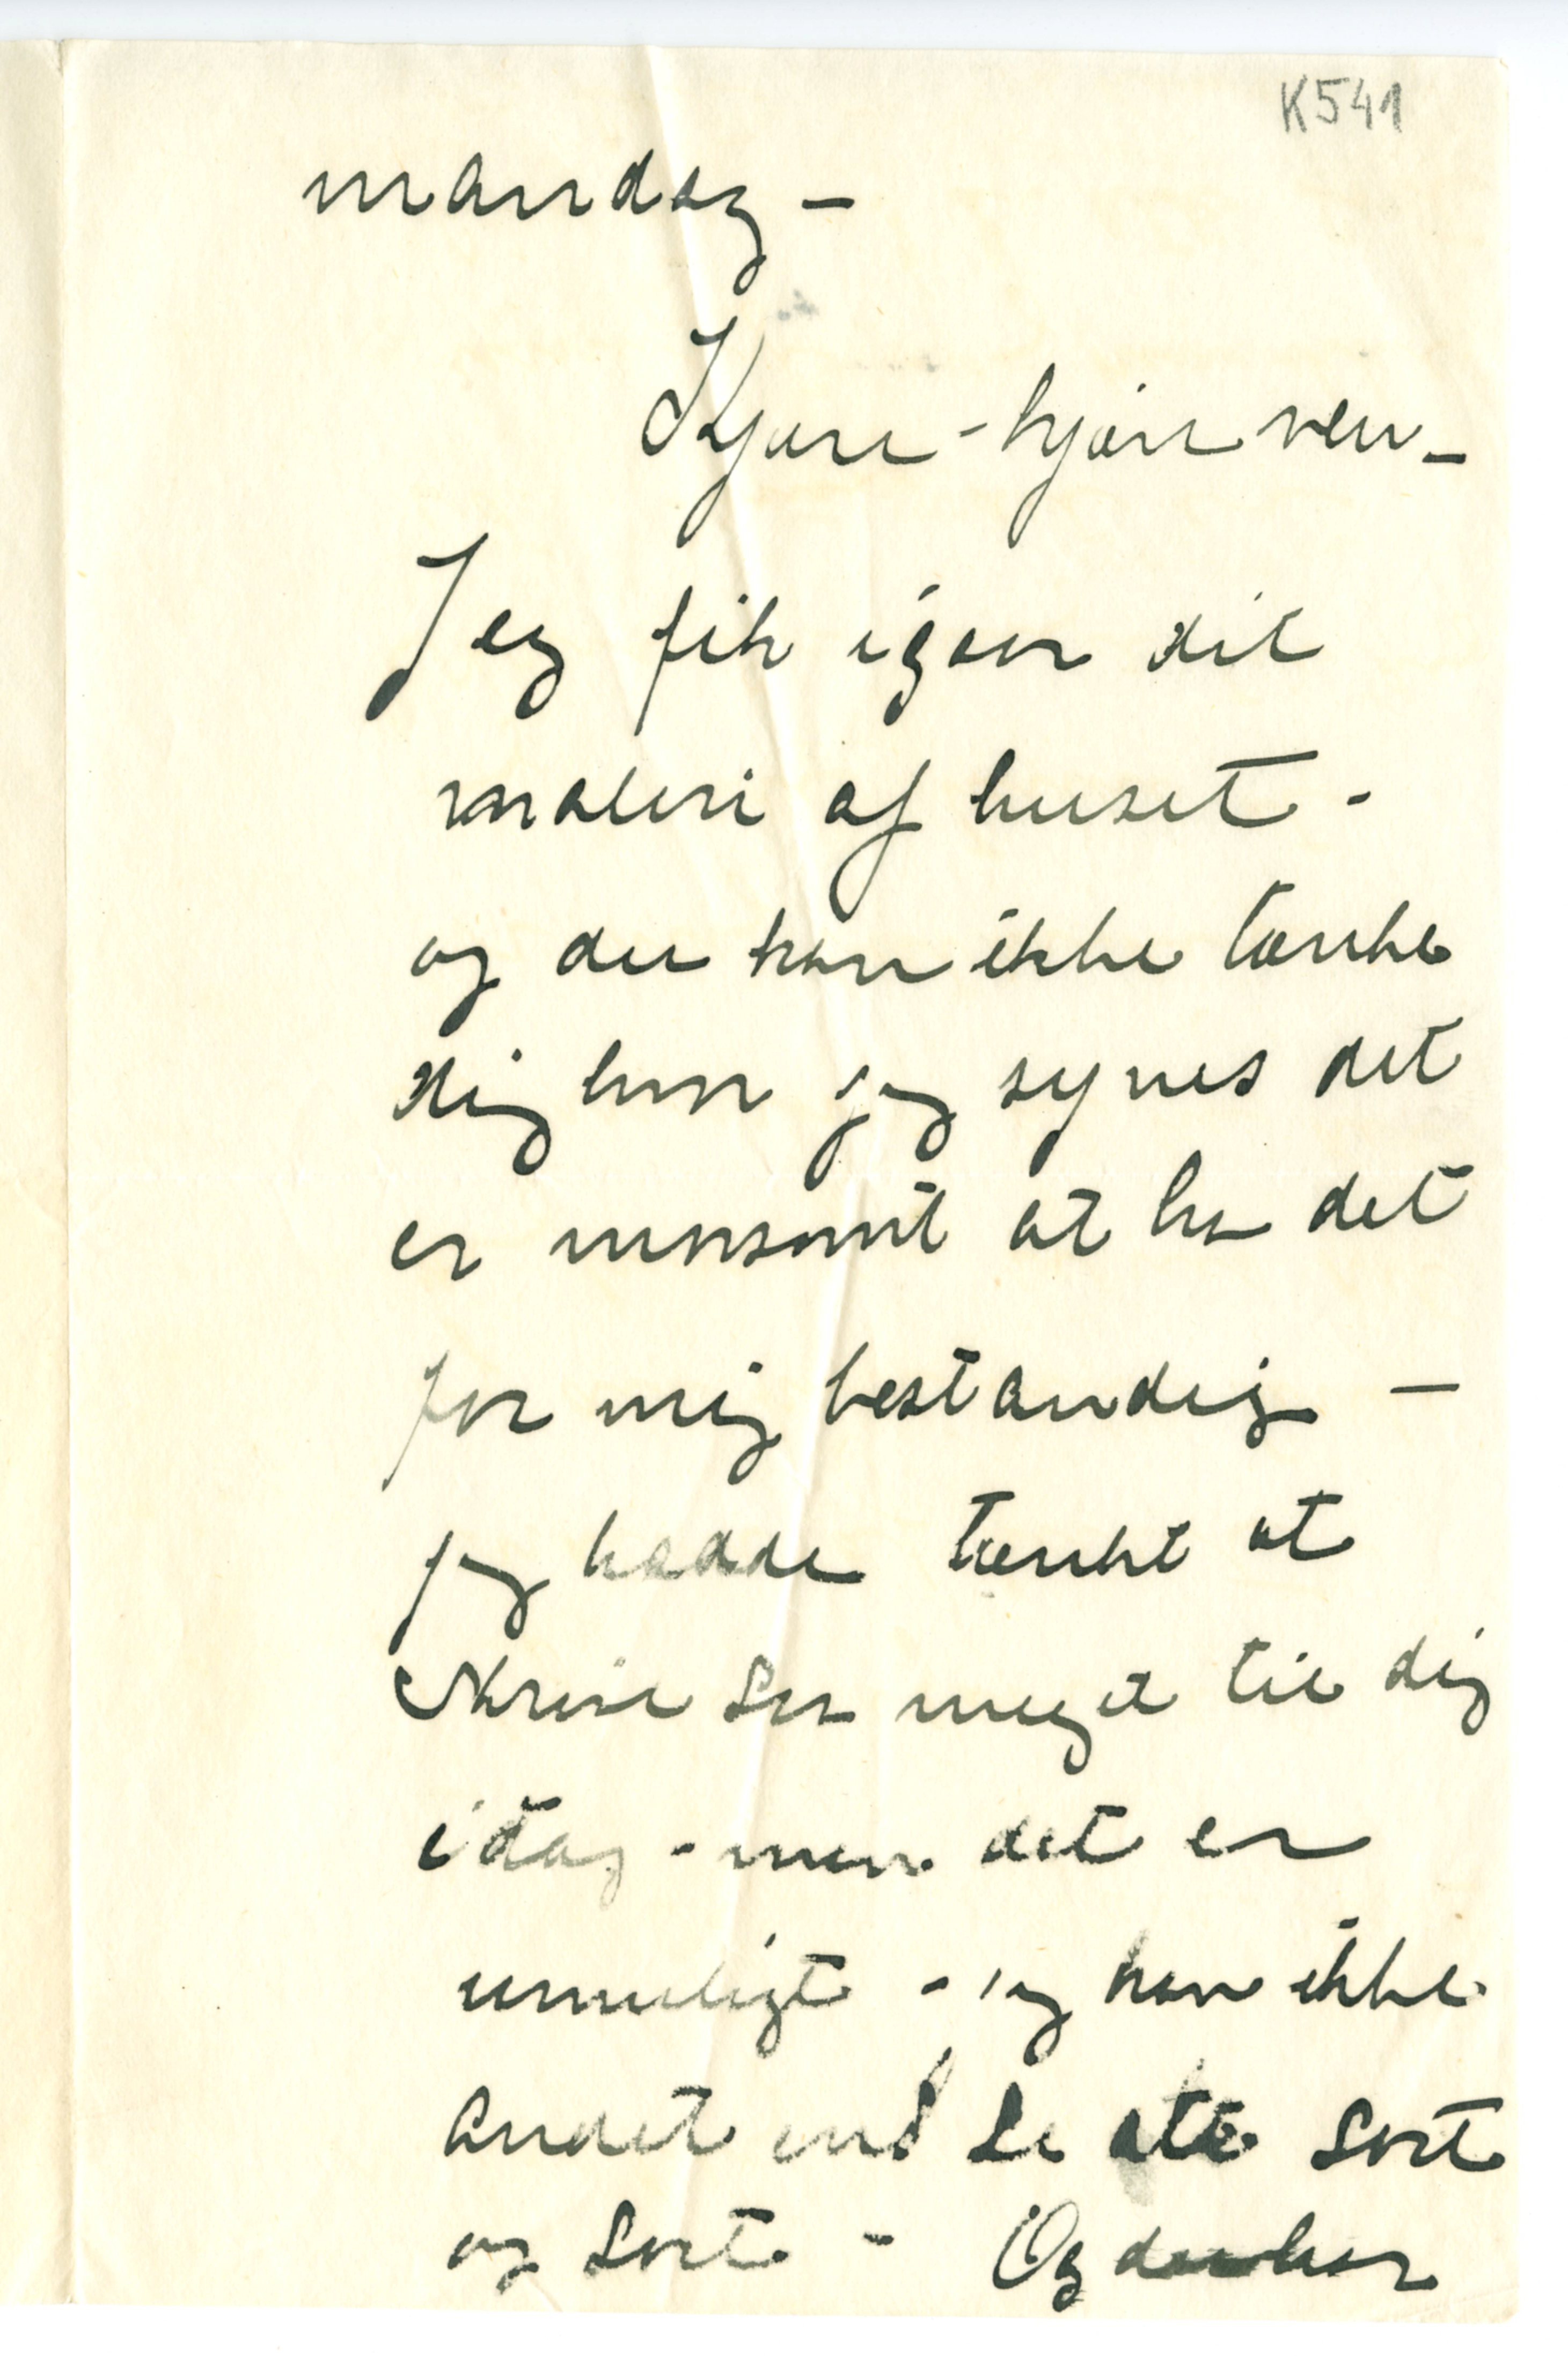 K541
mandag –
Kjære - kjære ven –
Jeg fik igaar dit
maleri af huset -
og du kan ikke tænke
dig hvor jeg synes det
er morsomt at ha det
for mig bestandig –
jeg hadde tænkt at
skrive saa meget til dig
idag - men det er
umuligt - jeg kan ikke
andet end se alt sort
og sort - Og du har